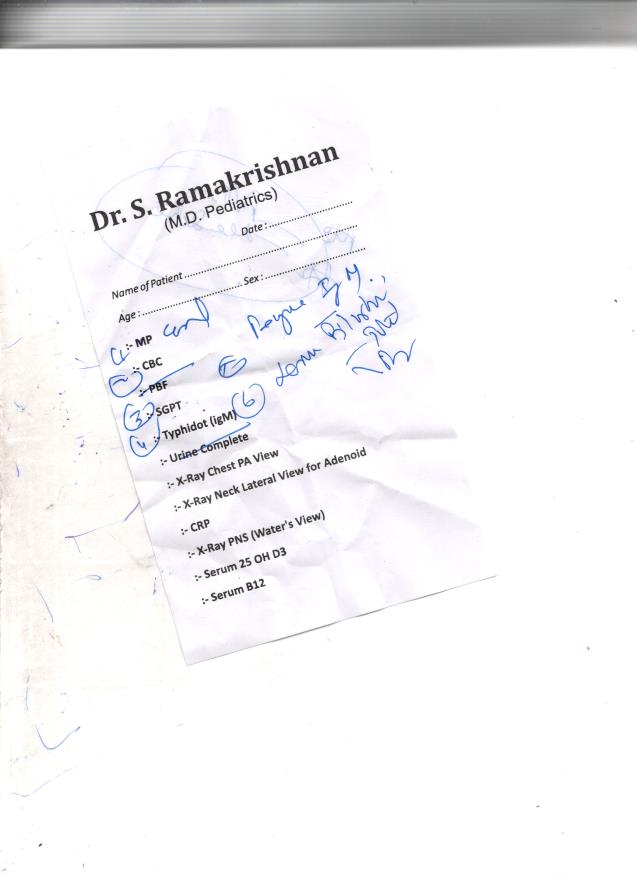 Dr. S. Ramakrishnan
(M.D. Pediatrics)
Date :
Name of Patient
Age : Sex :
1 :- MP card
2 :- CBC
:- PBF
3 :- SGPT
4 :- Typhidot (igM)
:- Urine Complete
:- X-Ray Chest PA View
:- X-Ray Neck Lateral View for Adenoid
:- CRP
:- X-Ray PNS (Water's View)
:- Serum 25 OH D3
:- Serum B12
5 Dengue IgM
6 Serum